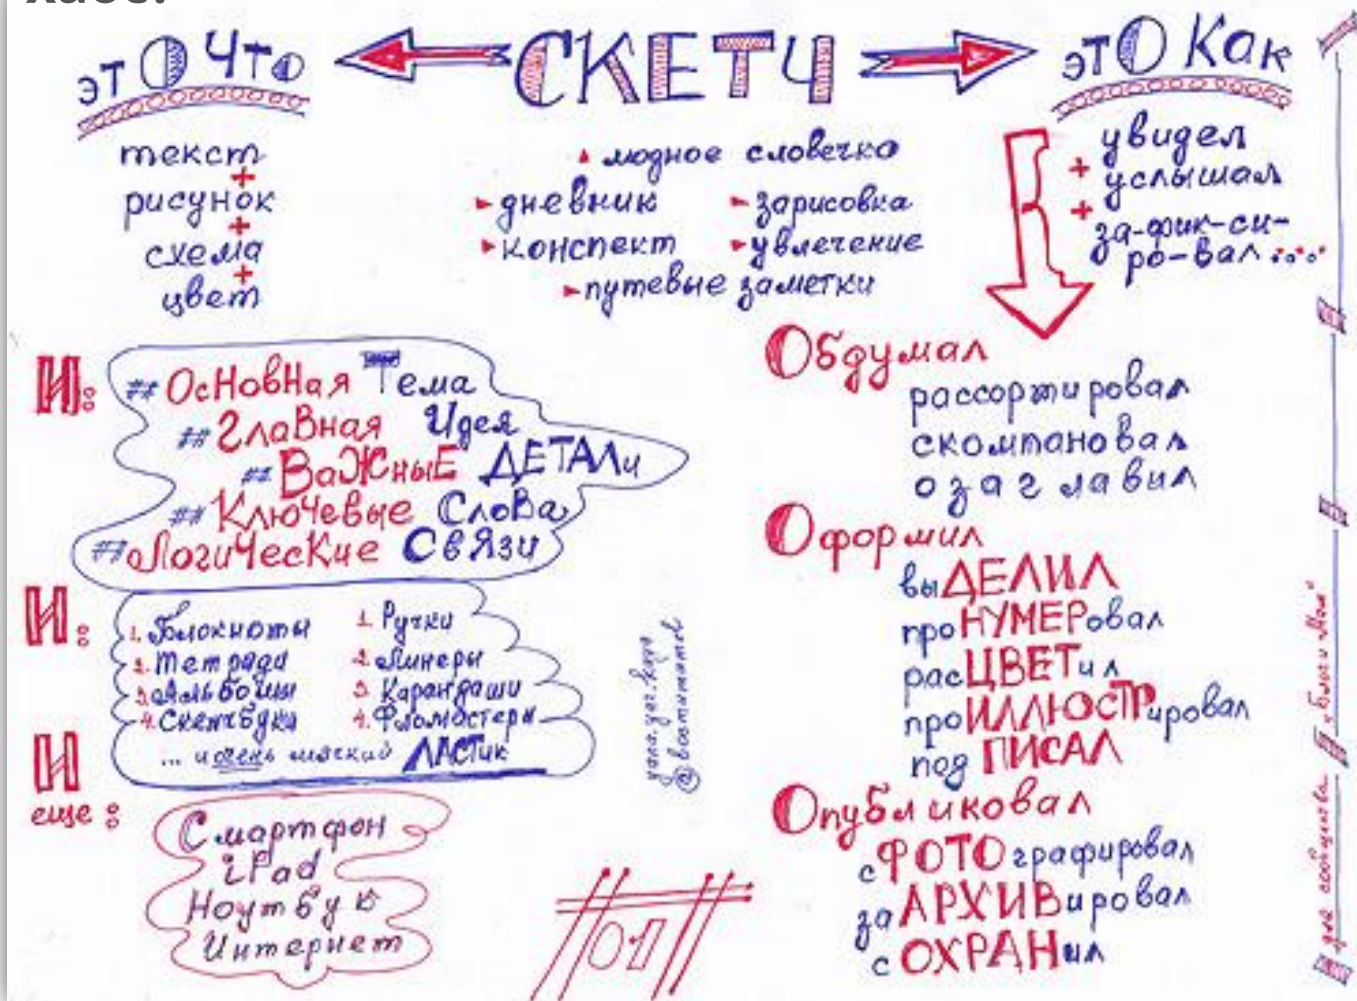 СКЕТЧ
этО Что
текст
+
рисунок
+
схема
+
цвет
модное словечко
дневник
зарисовка
конспект
увлечение
путевые заметки
этО Как
увидел
+ услышал
+ за-фик-си-
ро-вал....
И:
## ОсНовНая Тема
## ГлаВная Идея
## ВаЖныЕ ДЕТАЛи
## КлюЧевые СлоВа
## ЛогиЧесКие СвЯзи
И:
1. Блокноты
2. Тетради
3. Альбомы
4. Скетчбуки
1. Ручки
2. Линеры
3. Карандаши
4. Фломастеры
... и очень мягкий ЛАСТик
И
еще:
Смартфон
iPad
Ноутбук
Интернет
Обдумал
рассортировал
скомпановал
озаглавил
Оформил
выДЕЛИЛ
проНУМЕРовал
расЦВЕТил
проИЛЛЮСТРировал
подПИСАЛ
Опубликовал
сФОТОграфировал
заАРХИВировал
сОХРАНил
для сообщества